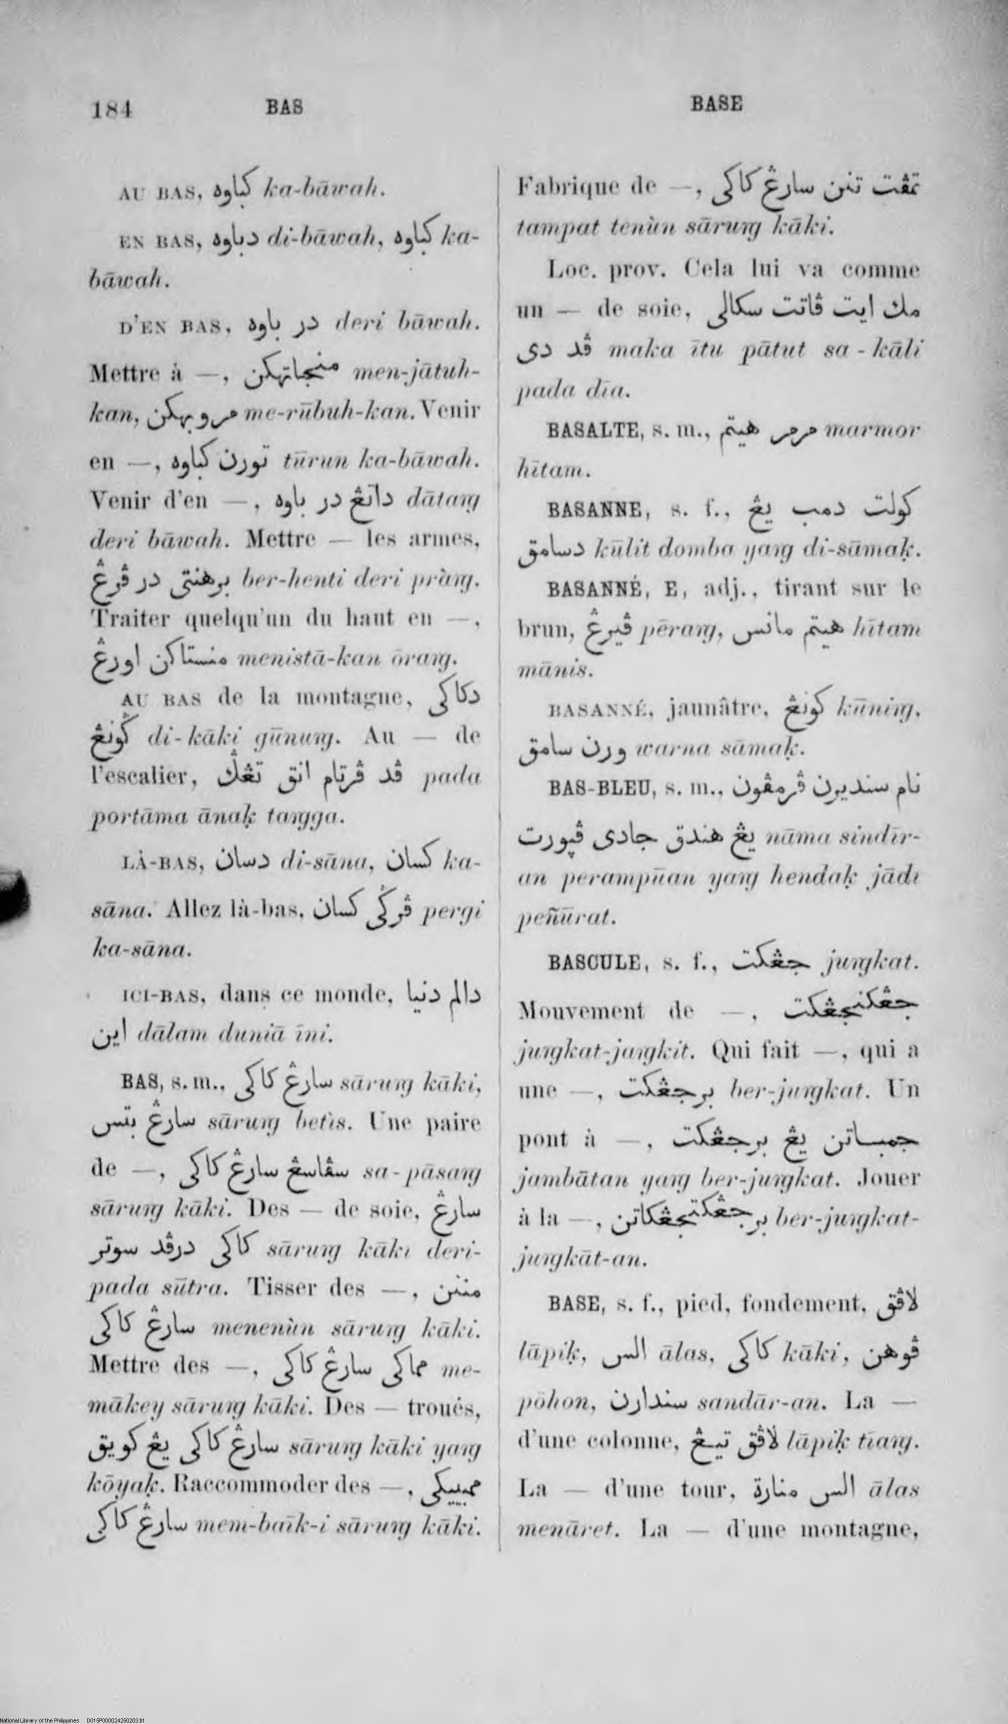 184 BAS BASE
AU BAS, کباوه ka-bāwah.
EN BAS, دباوه di-bāwah, کباوه ka-
bāwah.
D'EN BAS, در باوه deri bāwah.
Mettre à —, منجاتهکن men-jātuh-
kan, مروبهکن me-rūbuh-kan. Venir
en —, تورن کباوه tūrun ka-bāwah.
Venir d'en —, داتڠ در باوه dātaŋ
deri bāwah. Mettre — les armes,
برهنتي در ڤرڠ ber-henti deri pràŋ.
Traiter quelqu'un du haut en —,
منستاکن اورڠ menistā-kan ōraŋ.
AU BAS de la montagne, دکاکي
ݢونڠ di-kāki gūnuŋ. Au — de
l'escalier, ڤد ڤرتام انق تڠݢ pada
portāma ānaḳ taŋga.
LÀ-BAS, دسان di-sāna, کسان ka-
sāna. Allez là-bas, ڤرݢي کسان pergi
ka-sāna.
ICI-BAS, dans ce monde, دالم دنيا
اين dālam duniā īni.
BAS, s. m., سارڠ کاکي sāruŋ kāki,
سارڠ بتس sāruŋ betis. Une paire
de —, سڤاسڠ سارڠ کاکي sa-pāsaŋ
sāruŋ kāki. Des — de soie, سارڠ
کاکي درڤد سوتر sāruŋ kāki deri-
pada sūtra. Tisser des —, منتن
سارڠ کاکي menenùn sāruŋ kāki.
Mettre des —, مماکي سارڠ کاکي me-
mākey sāruŋ kāki. Des — troués,
سارڠ کاکي يڠ کويق sāruŋ kāki yaŋ
kōyaḳ. Raccommoder des —, ممبيکي
سارڠ کاکي mem-baīk-i sāruŋ kāki.
Fabrique de —, تمڤت تنن سارڠ کاکي
tampat tenùn sāruŋ kāki.
Loc. prov. Cela lui va comme
un — de soie, مك ايت ڤاتت سکالي
ڤد دي maka ītu pātut sa-kāli
pada dīa.
BASALTE, s. m., مرمر هيتم marmor
hītam.
BASANNE, s. f., کولت دمب يڠ
دسامق kūlit domba yaŋ di-sāmaḳ.
BASANNÉ, E, adj., tirant sur le
brun, ڤيرڠ pēraŋ, هيتم مانس hītam
mānis.
BASANNÉ, jaunâtre, کونڠ kūniŋ,
ورن سامق warna sāmaḳ.
BAS-BLEU, s. m., نام سنديرن ڤرمڤون
يڠ هندق جادي ڤپورت nāma sindīr-
an perampūan yaŋ hendaḳ jādi
peñūrat.
BASCULE, s. f., جڠکت juŋkat.
Mouvement de —, جڠکتجڠکت
juŋkat-jaŋkit. Qui fait —, qui a
une —, برجڠکت ber-juŋkat. Un
pont à —, جمباتن يڠ برجڠکت
jambātan yaŋ ber-juŋkat. Jouer
à la —, برجڠکتجڠکاتن ber-juŋkat-
juŋkāt-an.
BASE, s. f., pied, fondement, لاڤق
lāpiḳ, الس ālas, کاکي kāki, ڤوهن
pōhon, سندارن sandār-an. La —
d'une colonne, لاڤق تيڠ lāpiḳ tīaŋ.
La — d'une tour, الس منارة ālas
menāret. La — d'une montagne,
National Library of the Philippines